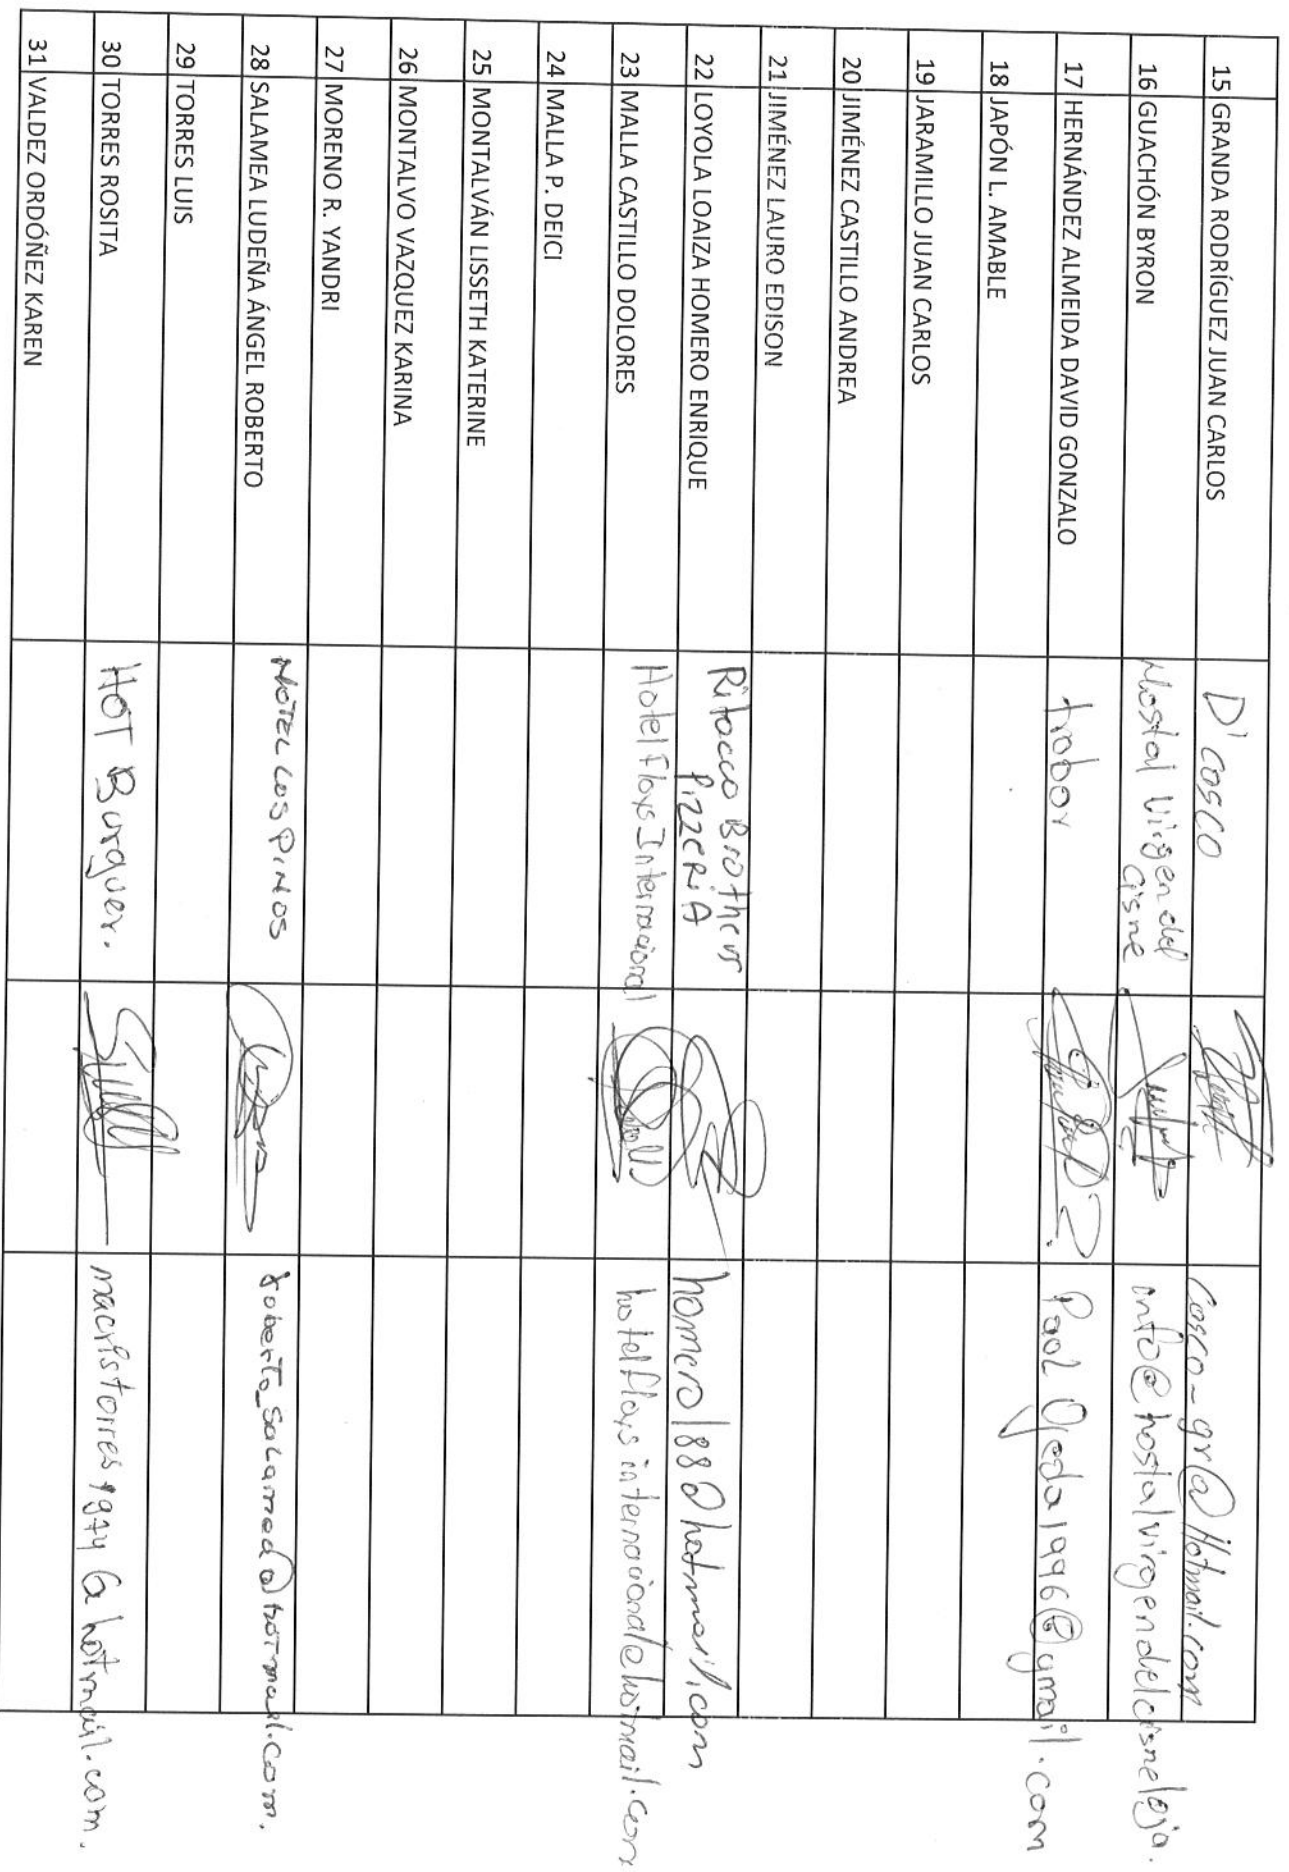 15 GRANDA RODRÍGUEZ JUAN CARLOS D'COSCO Cosco-gr@Hotmail.com
16 GUACHÓN BYRON Hostal Virgen del info@hostalvirgendelcisneloja.
Cisne
17 HERNÁNDEZ ALMEIDA DAVID GONZALO trobor Paol Ojeda1996@gmail.com
18 JAPÓN L. AMABLE
19 JARAMILLO JUAN CARLOS
20 JIMÉNEZ CASTILLO ANDREA
21 JIMÉNEZ LAURO EDISON
22 LOYOLA LOAIZA HOMERO ENRIQUE Ritacco Brothers homero188@hotmail.com
PizzeRiA
23 MALLA CASTILLO DOLORES Hotel Floys Internacional hotelfloysinternacional@hotmail.com
24 MALLA P. DEICI
25 MONTALVÁN LISSETH KATERINE
26 MONTALVO VAZQUEZ KARINA
27 MORENO R. YANDRI
28 SALAMEA LUDEÑA ÁNGEL ROBERTO MOTEL LOS PINOS roberto_salamea@hotmail.com.
29 TORRES LUIS
30 TORRES ROSITA HOT Burguer. macristorres1974@hotmail.com.
31 VALDEZ ORDÓÑEZ KAREN